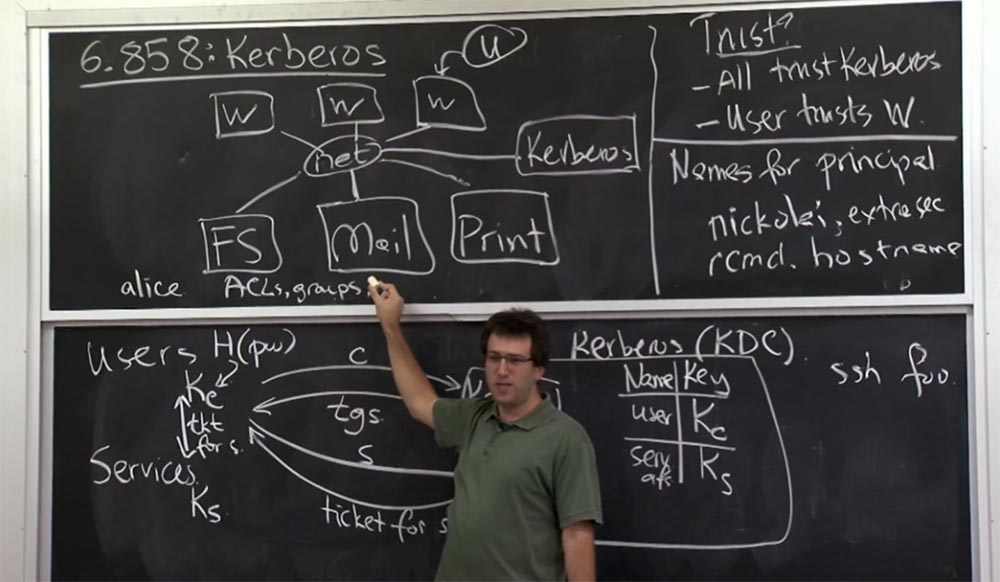 6.858: Kerberos
u
W W W
net
Kerberos
FS Mail Print
alice ACLs, groups,
Trust?
- All trust Kerberos
- User trusts W.
Names for principal
nickolai, extrasec
rcmd. hostname
Users H(pw)
Kc
tkt
for s.
Services
Ks
c
tgs
s
ticket for s
Kerberos (KDC)
Name Key
user Kc
serv Ks
afs
ssh foo.